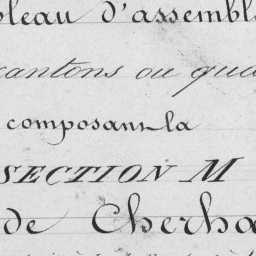 bleau d'assembl
cantons ou qua
composant la
SECTION M
de Cherha